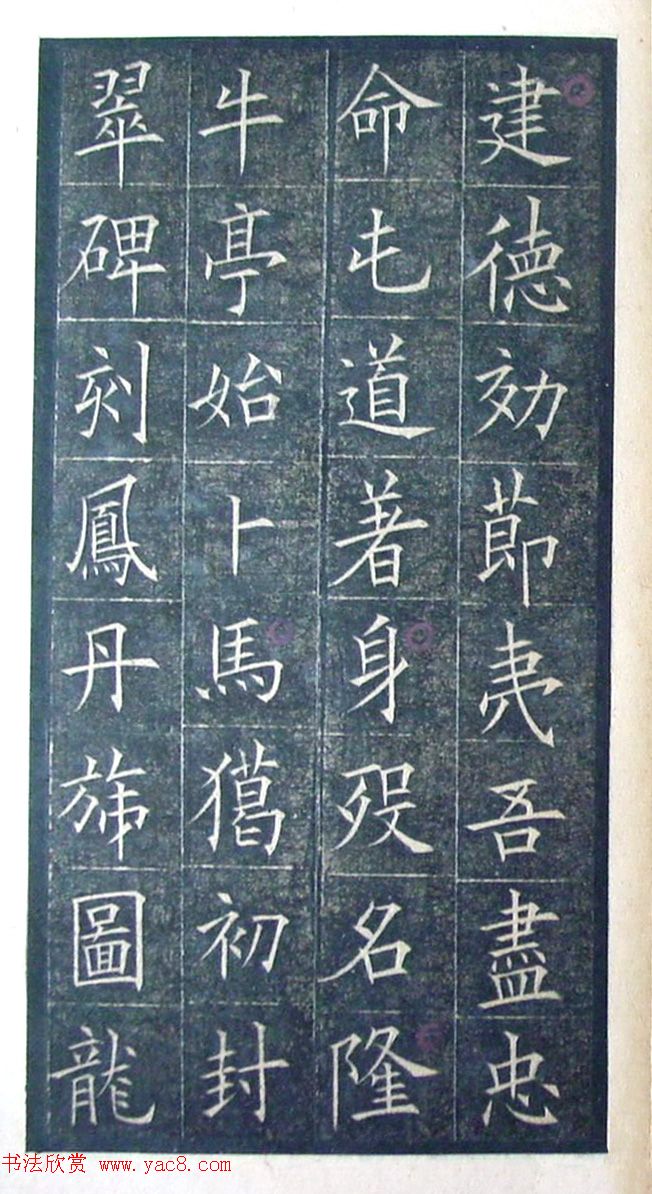 建德効莭夷吾盡忠
命屯道著身歿名隆
牛亭始卜馬獦初封
翠碑刻鳳丹斾圖龍
书法欣赏 www.yac8.com